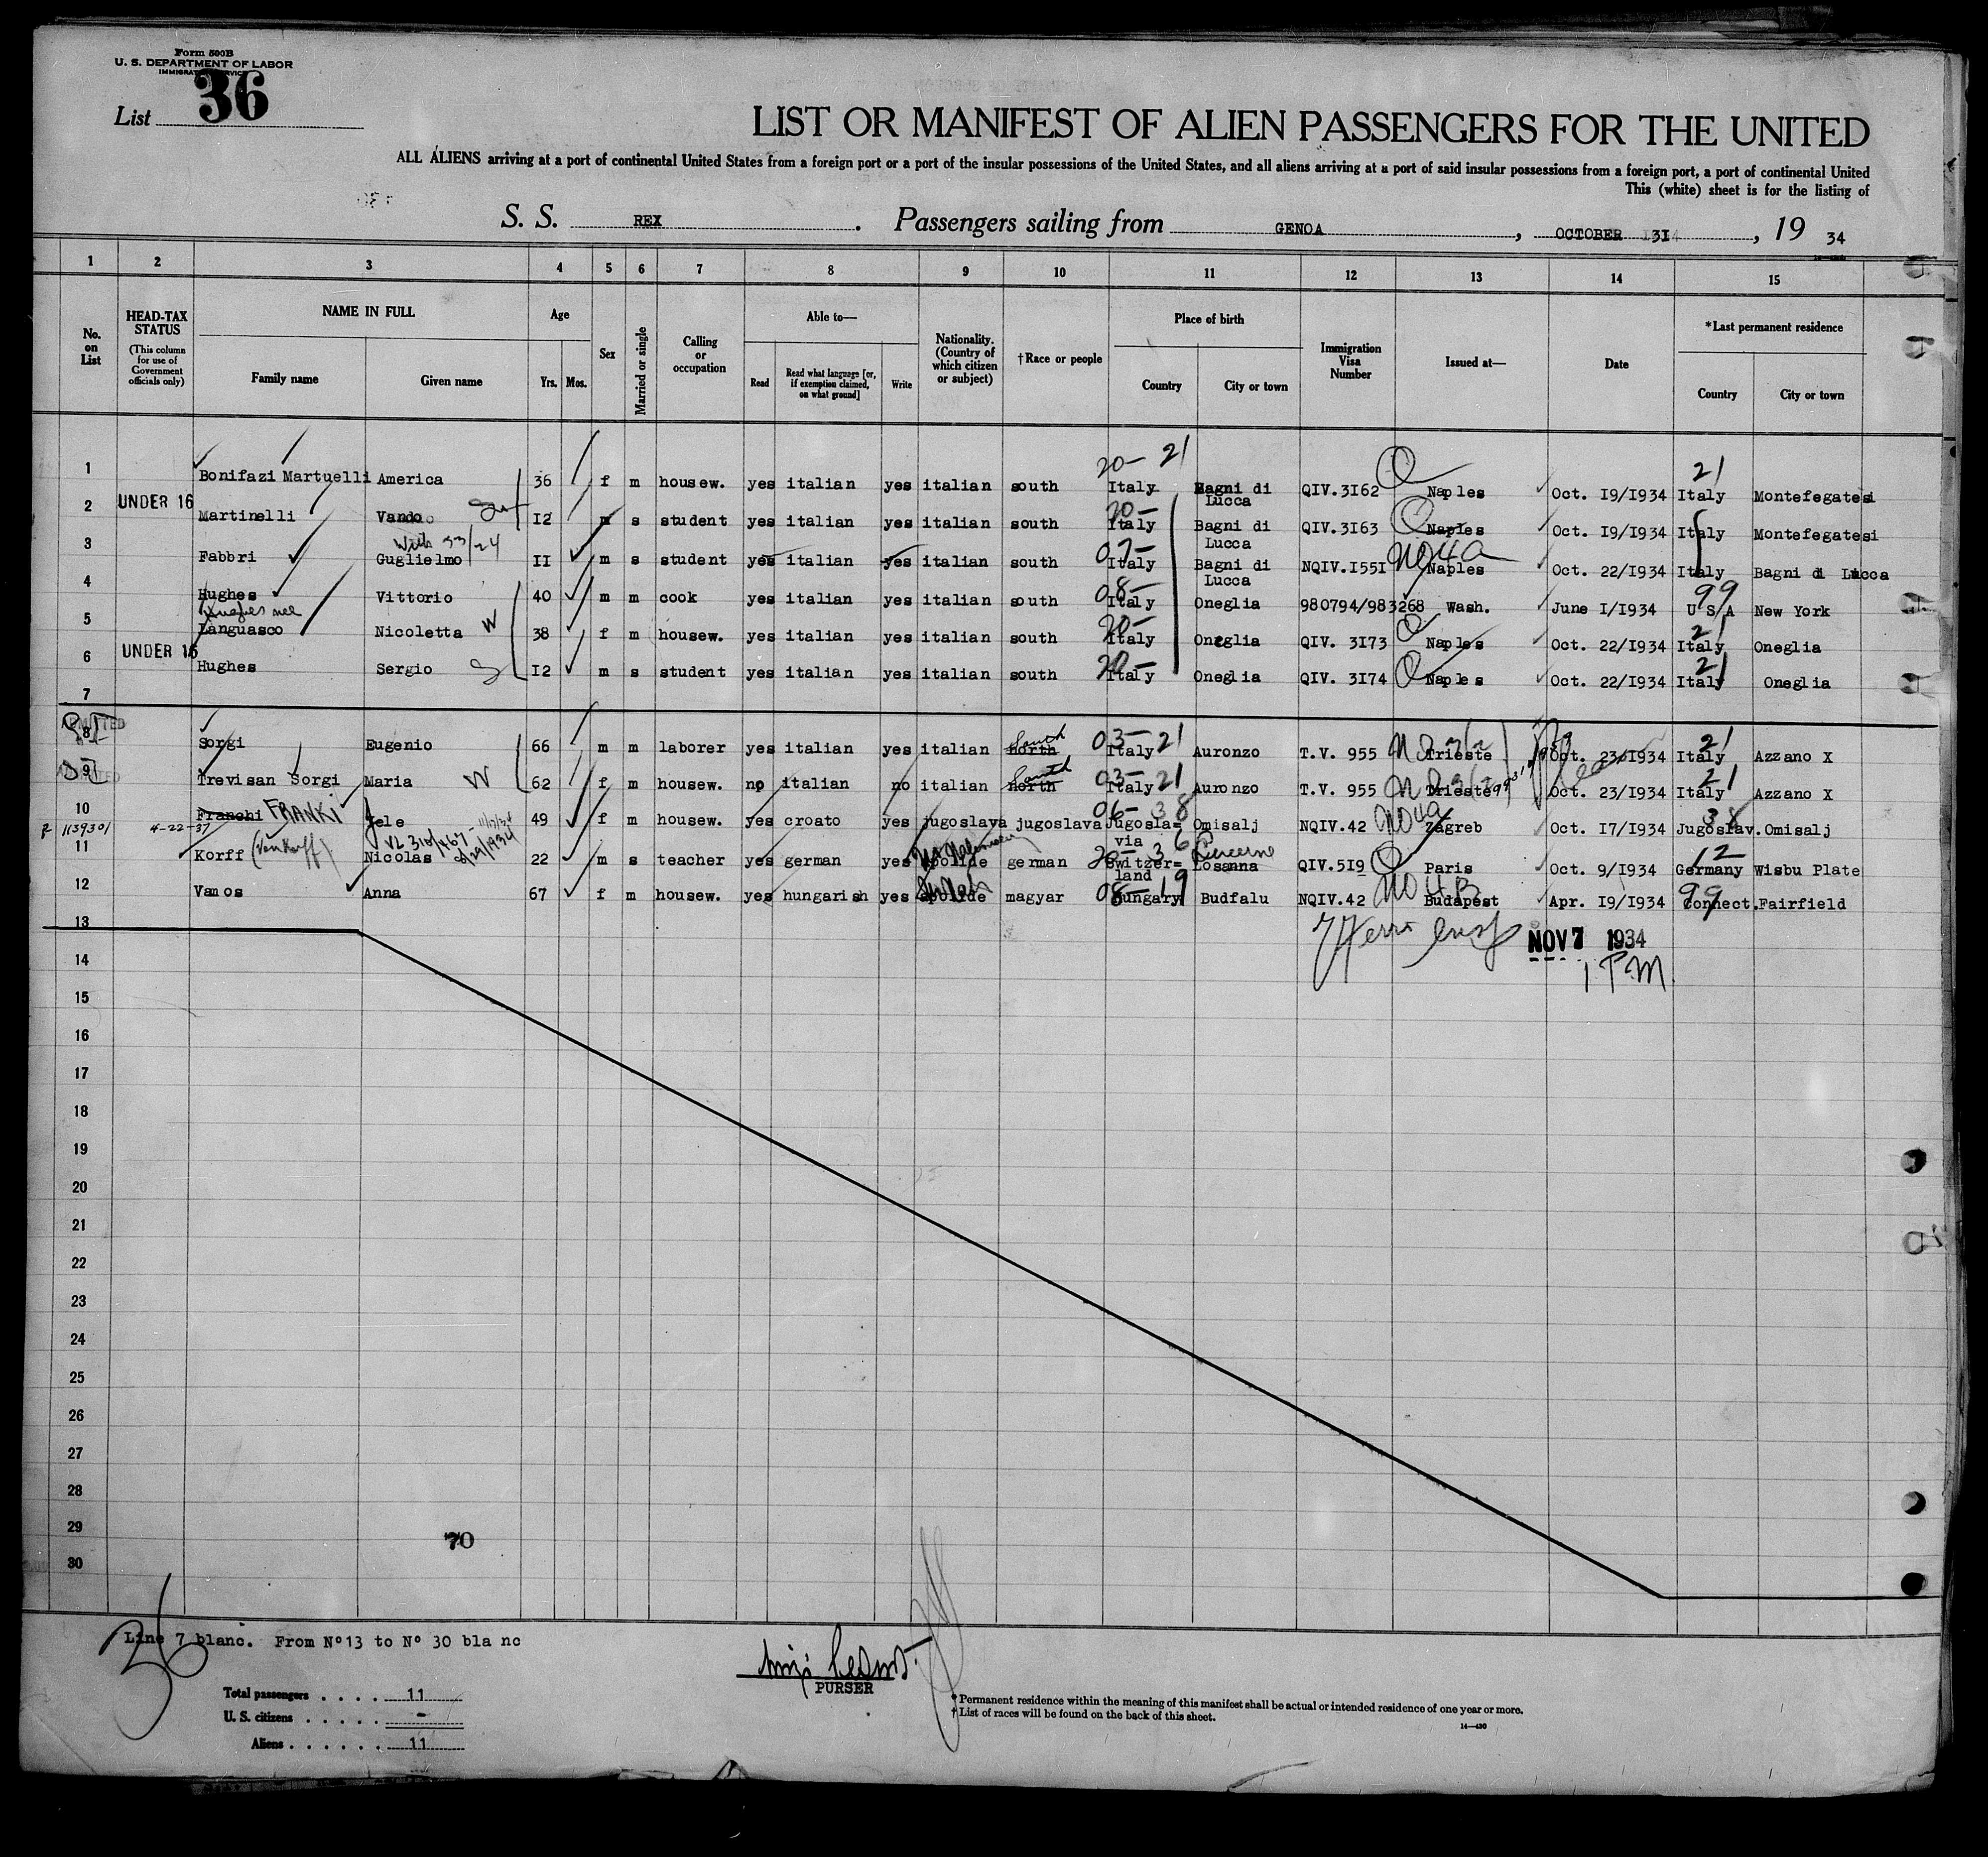 Form 500B
U. S. DEPARTMENT OF LABOR
IMMIGRATION SERVICE
List 36
LIST OR MANIFEST OF ALIEN PASSENGERS FOR THE UNITED
ALL ALIENS arriving at a port of continental United States from a foreign port or a port of the insular possessions of the United States, and all aliens arriving at a port of said insular possessions from a foreign port, a port of continental United
This (white) sheet is for the listing of
S. S. REX. Passengers sailing from GENOA, OCTOBER 31, 19 34
1 2 3 4 5 6 7 8 9 10 11 12 13 14 15
No. on List
HEAD-TAX STATUS
(This column for use of Government officials only)
NAME IN FULL
Family name Given name
Age
Yrs. Mos.
Sex
Married or single
Calling or occupation
Able to—
Read Read what language [or, if exemption claimed, on what ground] Write
Nationality. (Country of which citizen or subject)
†Race or people
Place of birth
Country City or town
Immigration Visa Number
Issued at—
Date
*Last permanent residence
Country City or town
20- 21 21
1 Bonifazi Martuelli America 36 f m housew. yes italian yes italian south Italy Bagni di Lucca QIV.3I62 Naples Oct. I9/I934 Italy Montefegatesi
2 UNDER 16 Martinelli Vando I2 m s student yes italian yes italian south 20- Italy Bagni di Lucca QIV.3I63 Naples Oct. I9/I934 Italy Montefegatesi
3 Fabbri Guglielmo II m s student yes italian yes italian south 07- Italy Bagni di Lucca NQIV.I55I NO4a Naples Oct. 22/I934 Italy Bagni di Lucca
4 Hughes Vittorio 40 m m cook yes italian yes italian south 08- Italy Oneglia 980794/983268 Wash. June I/I934 99 U S A New York
Hughes nee
5 Languasco Nicoletta W 38 f m housew. yes italian yes italian south 20- Italy Oneglia QIV. 3I73 Naples Oct. 22/I934 21 Italy Oneglia
6 UNDER 16 Hughes Sergio S I2 m s student yes italian yes italian south 20- Italy Oneglia QIV. 3I74 Naples Oct. 22/I934 21 Italy Oneglia
7
ADMITTED
8 Sorgi Eugenio 66 m m laborer yes italian yes italian north South 03- Italy 21 Auronzo T.V. 955 Trieste Oct. 23/I934 21 Italy Azzano X
9 Trevisan Sorgi Maria W 62 f m housew. no italian no italian north South 03- Italy 21 Auronzo T.V. 955 Trieste Oct. 23/I934 21 Italy Azzano X
10 Franchi FRANKI Jele 49 f m housew. yes croato yes jugoslava jugoslava 06- 38 Jugosla= via Omisalj NQIV.42 NO4a Zagreb Oct. I7/I934 38 Jugoslav. Omisalj
1139301 4-22-37
11 Korff (Von Korff) Nicolas 22 m s teacher yes german yes apolide german 20- 36 Switzer= land Losanna Lucerne QIV.5I9 Paris Oct. 9/I934 12 Germany Wisbu Plate
12 Vamos Anna 67 f m housew. yes hungarish yes apolide magyar 08- 19 Hungary Budfalu NQIV.42 NO4B Budapest Apr. I9/I934 99 Connect. Fairfield
13
NOV 7 1934
1 PM
14
15
16
17
18
19
20
21
22
23
24
25
26
27
28
29
70
30
36
Line 7 blanc. From N° 13 to N° 30 bla nc
PURSER
Total passengers . . . . 11
U. S. citizens . . . . . -
Aliens . . . . . . 11
* Permanent residence within the meaning of this manifest shall be actual or intended residence of one year or more.
† List of races will be found on the back of this sheet.
14—430